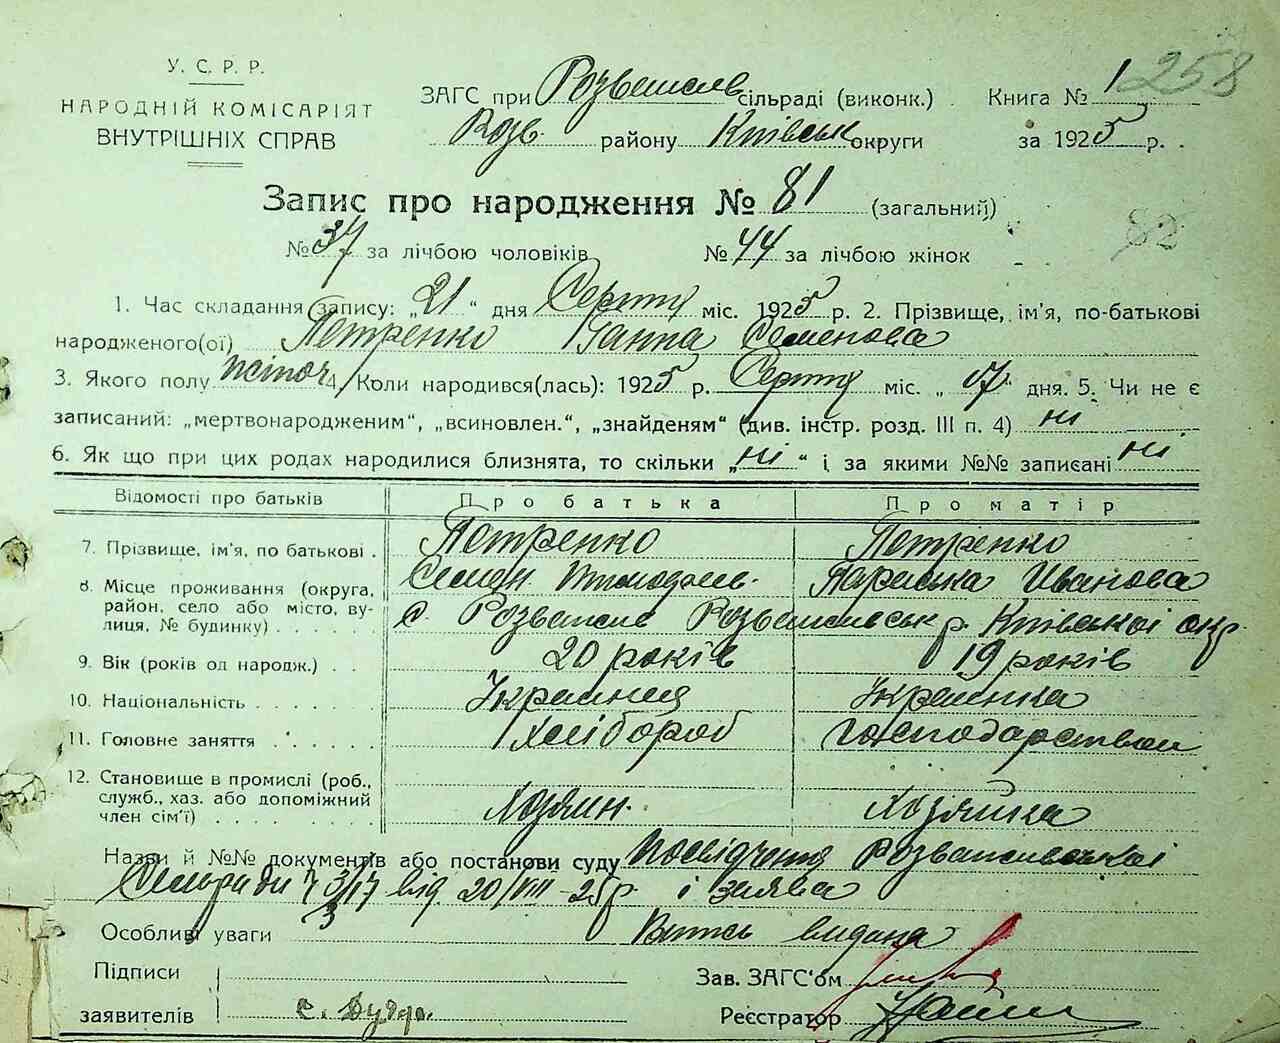 У. С. Р. Р.
НАРОДНІЙ КОМІСАРІЯТ
ВНУТРІШНІХ СПРАВ
ЗАГС при Розважів сільраді (виконк.) Книга № 1 258
Розв. району Київськ округи за 1925 р.
Запис про народження № 81 (загальний)
82
№ 37 за лічбою чоловіків № 44 за лічбою жінок
1. Час складання запису: „21" дня Серпня міс. 1925 р. 2. Прізвище, ім'я, по-батькові
народженого(ої) Петренко Ганна Семенова
3. Якого полу жіноч 4. Коли народився(лась): 1925 р. Серпня міс. „17" дня. 5. Чи не є
записаний: „мертвонародженим", „всиновлен.", „знайденям" (див. інстр. розд. III п. 4) ні
6. Як що при цих родах народилися близнята, то скільки „ні" і за якими №№ записані ні
Відомості про батьків Про батька Про матір
7. Прізвище, ім'я, по батькові . Петренко Петренко
Семен Параська Иванова
8. Місце проживання (округа, район, село або місто, вулиця, № будинку) . . . . . с. Розважів Розважівськ р. Київської окр.
9. Вік (років од народж.) . . 20 років 19 років
10. Національность . . . . . . Украинец Украинка
11. Головне заняття . . . . . . Хлібороб господарством
12. Становище в промислі (роб., служб., хаз. або допоміжний член сім'ї) . . . . . . . Хозяин. Хозяйка
Назви й №№ документів або постанови суду посвідчення Розважівської
Сельради від 20/VIII-25 р. і заява
Особливі уваги Витяг видана
Підписи Зав. ЗАГС'ом
заявителів Реєстратор